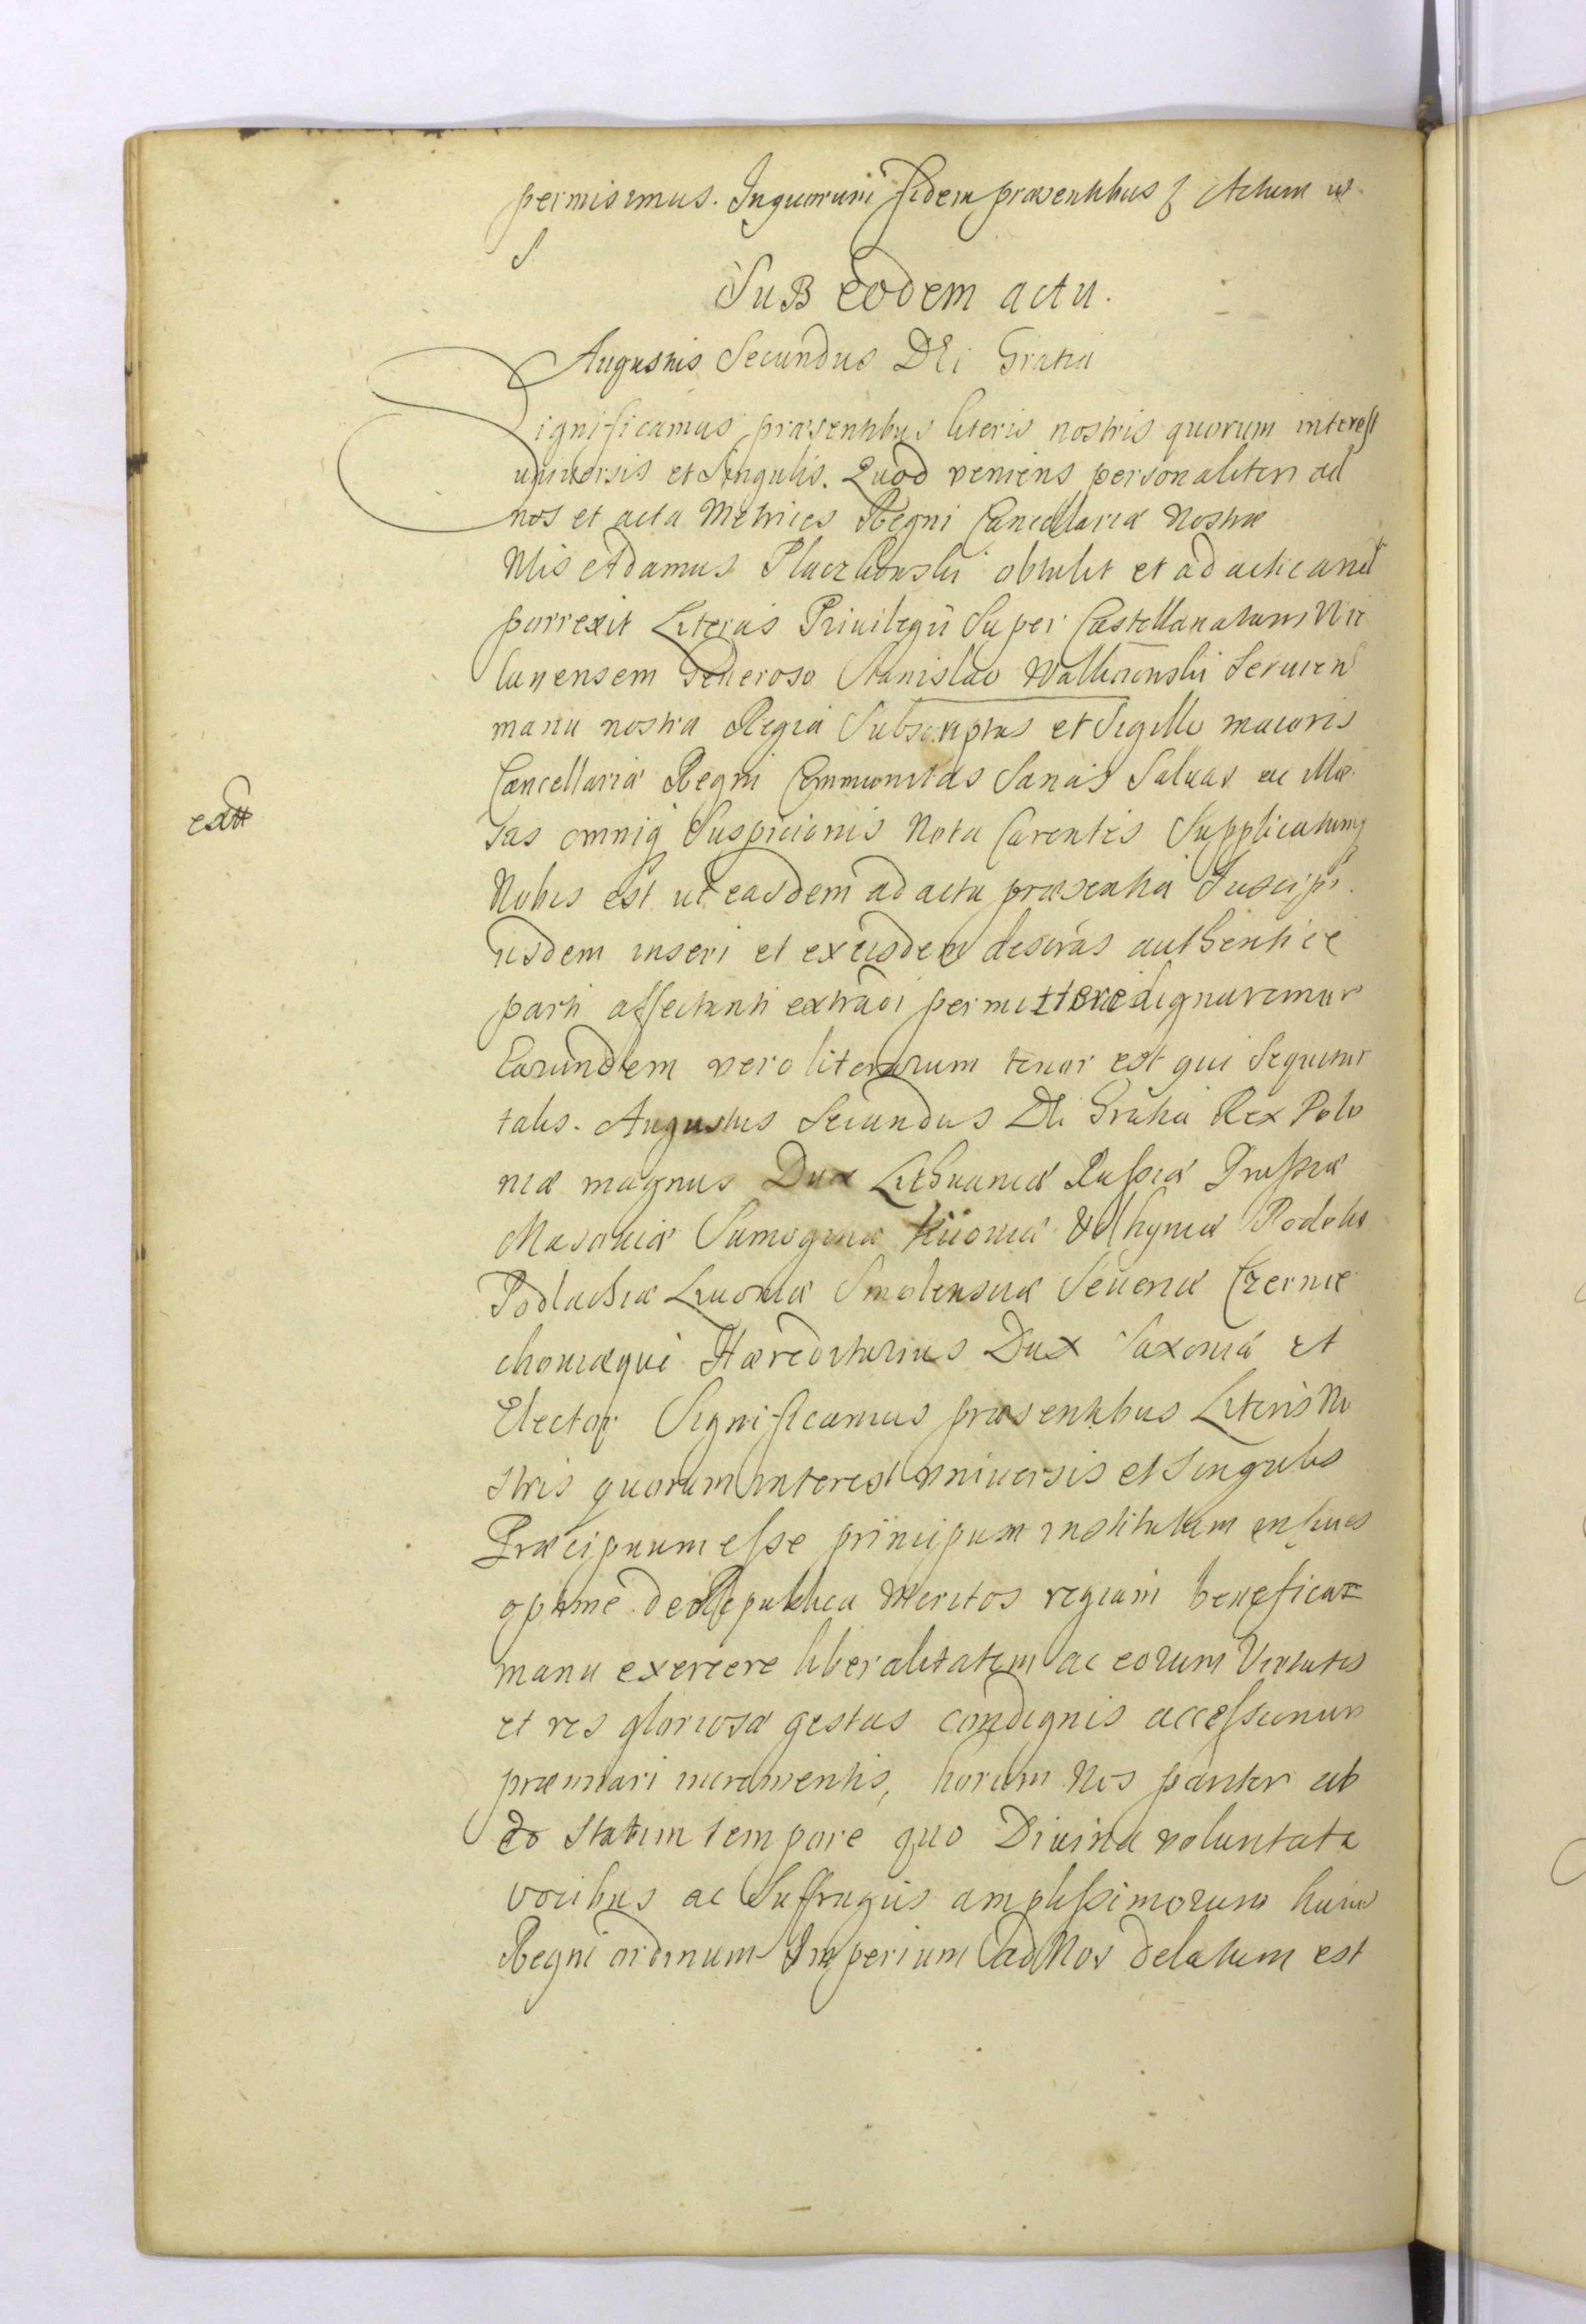 permisimus. Inquorum fidem præsentibus Actum ut
S
Sub eodem actu.
Augustus Secundus DEi Gratia
Significamus præsentibus literis nostris quorum interest
universis et Singulis. Quod veniens personaliter ad
nos et acta Metrices Regni Cancellariæ Nostræ
Nlis Adamus obtulit et ad acticand
porrexit Literas Priuilegii Super Castellanatum Vie
lunensem Generoso Stanislao Walknowski Seruien
manu nostra Regia Subscriptas et Sigillo maioris
Cancellariæ Regni Communitas Sanas Saluas ac illæ
sas omniq Suspicionis Nota Carentes Supplicatumq
Nobis est ut easdem ad acta præsentia Suscipi
iisdem inseri et exeisdem descrias authentice
parti affectanti extradi permittere dignaremur
Earundem vero literarum tenor est qui Sequitur
talis. Augustus Secundus DEi Gratia Rex Polo
niæ magnus Dux Lithuaniæ Russiæ Prussiæ
Masouiæ Samogitiæ Kiiouiæ Volhyniæ Podoliæ
Podlachiæ Liuoniæ Smolensciæ Seueriæ Czernie
chouiæque Hæreditarius Dux Saxoniæ et
Elector Significamus præsentibus Literis No
stris quorum interest vniuersis et Singulis
Præcipuum esse principum institutum in suos
optime de Republica Meritos regiam benefica
manu exercere liberalitatem ac eorum Virtutes
et res gloriose gestas condignis accessionum
præmiari incrementis, horum Nos pariter ab
eo statim tempore quo Diuina voluntate
vocibus ac Suffragiis amplissimorum huius
Regni ordinum Imperium ad Nos delatum est
extt